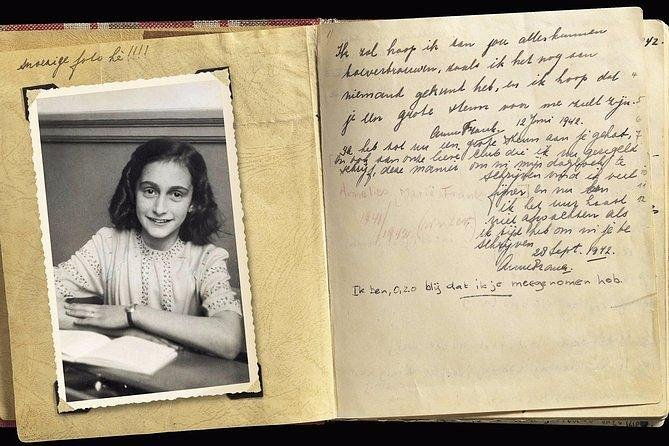 snoezige foto hè!!!!
Ik zal hoop ik aan jou alles kunnen
toevertrouwen, zoals ik het nog aan
niemand gekund heb, en ik hoop dat
je een grote steun voor me zult zijn.
Anne Frank. 12 Juni 1942.
Ik heb tot nu een grote steun aan je gehad,
en ook aan onze lieve club die ik nu geregeld
schrijf, deze manier om in mijn dagboek te
schrijven vind ik veel
fijner en nu kan
ik het uur haast
niet afwachten als
ik tijd heb om in je te
schrijven.
28 Sept. 1942.
Anne Frank.
Ik ben, O, zo blij dat ik je meegenomen heb.
Annelies Marie Frank
1941
1942
42.
4
5
6
7